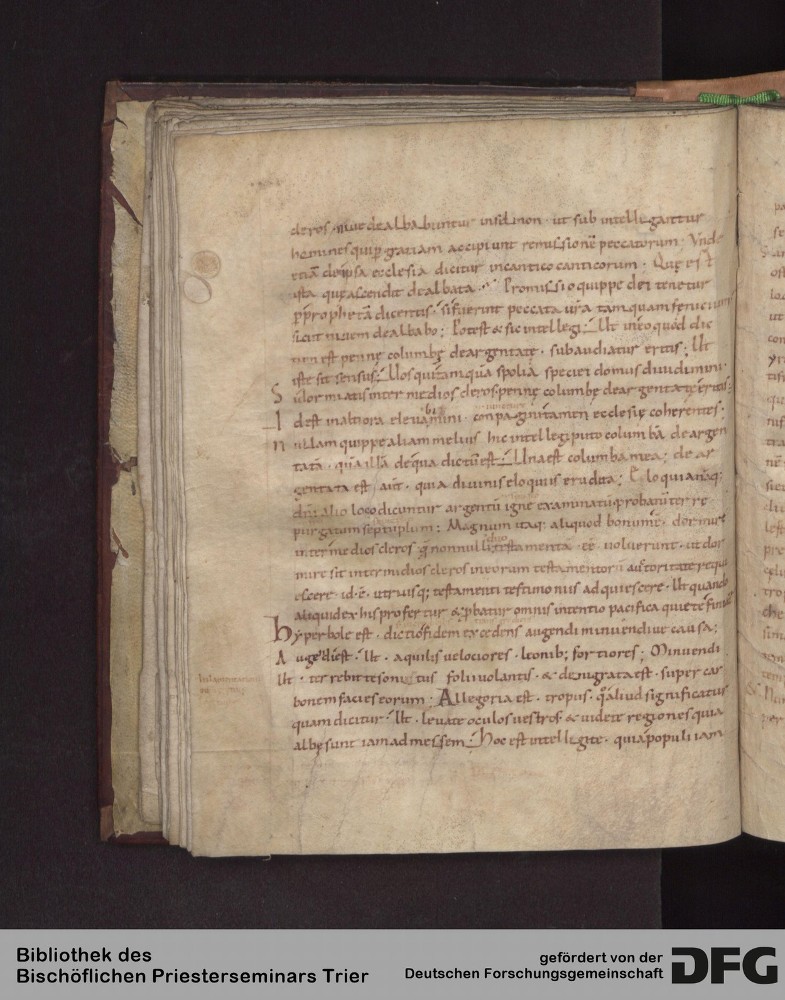 de ros · niue dealbabuntur in selmon · ut sub intellegantur
homines qui ꝑ gratiam accipiunt remissionē peccatorum · Vnde
etiā de ipsa ecclesia dicitur in cantico canticorum · Quę est
ista quę ascendit dealbata · Promissio quippe dei tenetur
ꝑ prophetā dicentis · si fuerint peccata ur̄a tamquam fenicium
sicut niuem dealbabo ; Potest & sic intellegi · Ut in eo quod dic
non est pennę columbę deargentatę · subaudiatur eritis ; Ut
iste sit sensus · Uos qui tamquā spolia speciei domus diuidimini
S
inter medios cleros pennę columbę deargentatę eritis ;
I
id est in altiora eleuamini · conpagini tamen ecclesię coherentes ·
N
nullam quippe aliam melius hic intellegi puto columbā deargen
tatā · quā illā de qua dictū est · Una est columba mea ; dear
gentata est aūt · quia diuinis eloquiis erudita ; Eloquia nāq;
dn̄i alio loco dicuntur argentū igne examinatū probatū terrę
purgatum septuplum ; Magnum itaq; aliquod bonum ē · dormire
inter medios cleros q̄ nonnulli duo testamenta · eē uoluerunt · ut dor
mire sit inter medios cleros in eorum testamentorū auctoritate requi
escere · id · ē · utriusq; testamenti testimoniis adquiescere · Ut quando
aliquid ex his profertur & ꝓbatur omnis intentio pacifica quiete finiatur
hyperbole est · dictio fidem excedens augendi minuendiue causa ;
Augendi est · Ut · aquilis uelociores · leonib; fortiores ; Minuendi
Ut · terrebit te sonitus folii uolantis · & denigrata est · super car
bonem facies eorum · Allegoria est · tropus · q̄ aliud significatur
quam dicitur · Ut · leuate oculos uestros & uidete regiones quia
albę sunt iam ad messem · hoc est intellegite · quia populi iam
Bibliothek des
Bischöflichen Priesterseminars Trier
gefördert von der
Deutschen Forschungsgemeinschaft
DFG